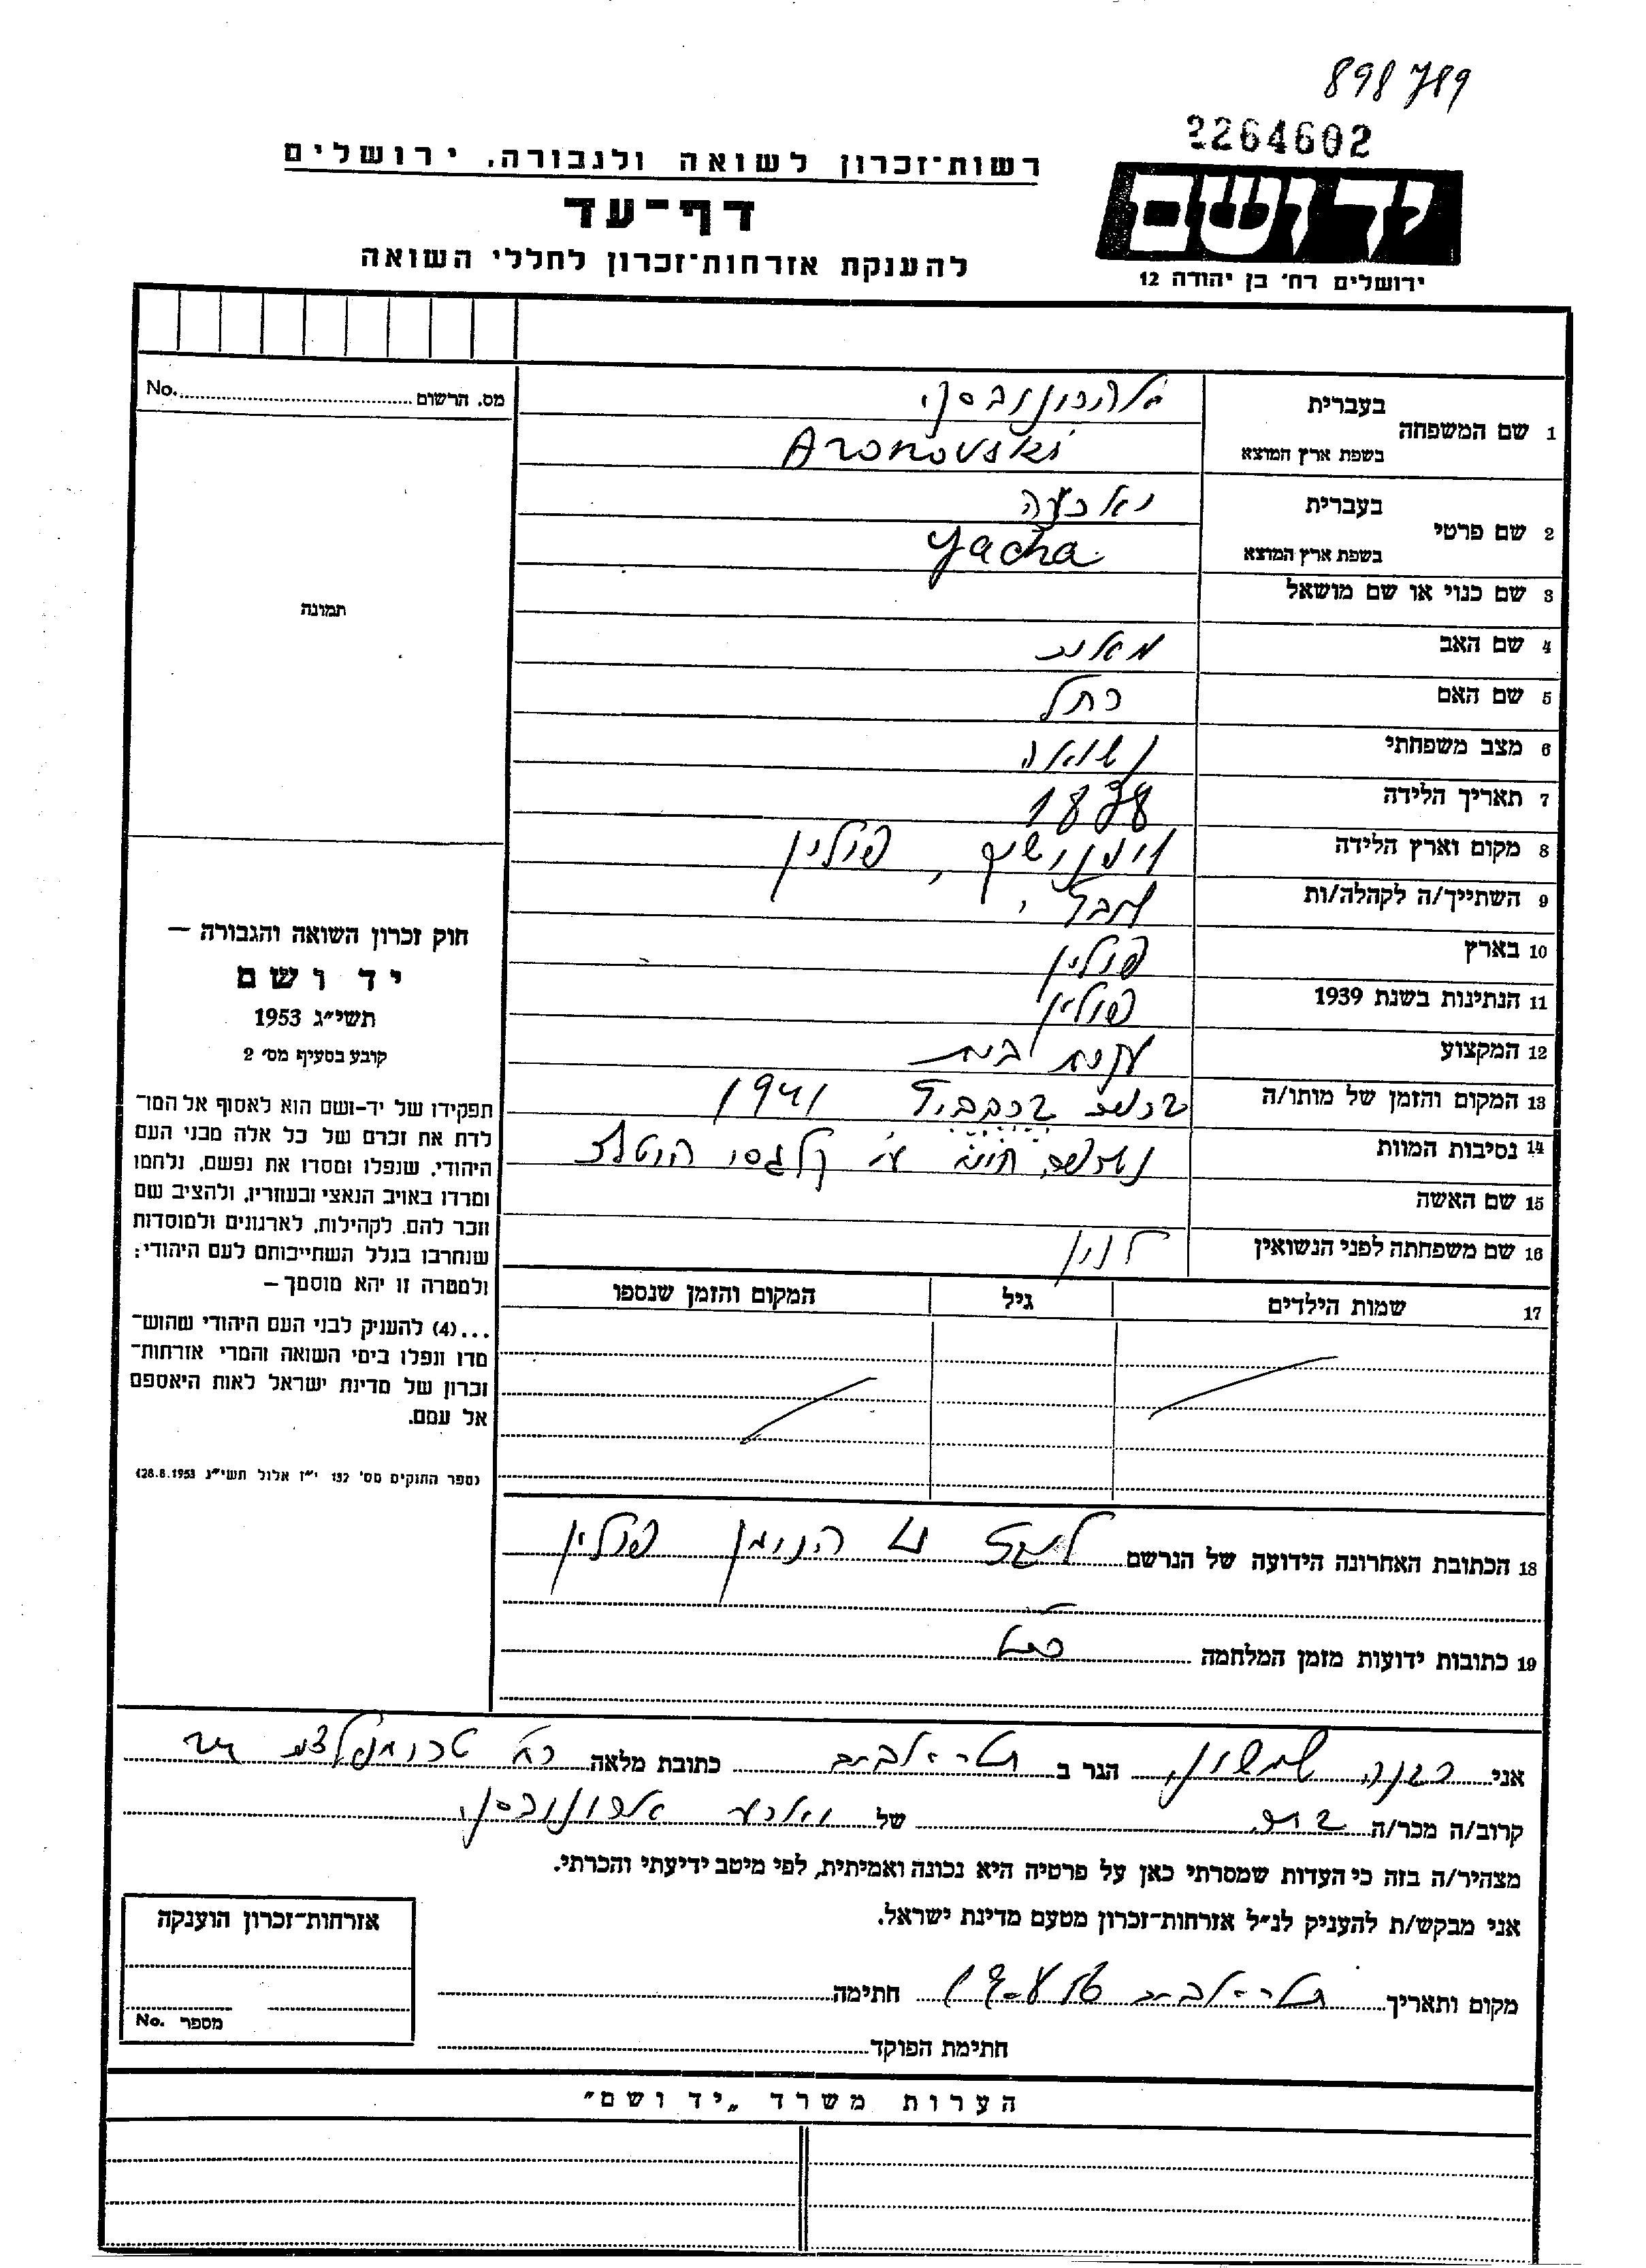 898789
2264602
רשות־זכרון לשואה ולגבורה, ירושלים
דף־עד
להענקת אזרחות־זכרון לחללי השואה
יד ושם
ירושלים רח' בן יהודה 12
מס. הרשום No.
תמונה
1 שם המשפחה
בעברית אהרונובסקי
בשפת ארץ המוצא Aronovski
2 שם פרטי
בעברית
בשפת ארץ המוצא Yacha
3 שם כנוי או שם מושאל
4 שם האב
5 שם האם רחל
6 מצב משפחתי נשואה
7 תאריך הלידה 1878
8 מקום וארץ הלידה פולין
9 השתייך/ה לקהלה/ות
10 בארץ פולין
11 הנתינות בשנת 1939 פולין
12 המקצוע עקרת בית
13 המקום והזמן של מותו/ה 1941
14 נסיבות המוות נשרפה חיה ע"י קלגסי היטלר
15 שם האשה
16 שם משפחתה לפני הנשואין לוין
17 שמות הילדים גיל המקום והזמן שנספו
18 הכתובת האחרונה הידועה של הנרשם פולין
19 כתובות ידועות מזמן המלחמה כנ"ל
חוק זכרון השואה והגבורה —
יד ושם
תשי״ג 1953
קובע בסעיף מס' 2
תפקידו של יד-ושם הוא לאסוף אל המו־
לדת את זכרם של כל אלה מבני העם
היהודי, שנפלו ומסרו את נפשם, נלחמו
ומרדו באויב הנאצי ובעוזריו, ולהציב שם
וזכר להם, לקהילות, לארגונים ולמוסדות
שנחרבו בגלל השתייכותם לעם היהודי;
ולמטרה זו יהא מוסמך —
...(4) להעניק לבני העם היהודי שהוש־
מדו ונפלו בימי השואה והמרי אזרחות־
זכרון של מדינת ישראל לאות היאספם
אל עמם.
(ספר החוקים מס' 132 י״ז אלול תשי״ג 28.8.1953)
אני שמשון הגר ב תל-אביב כתובת מלאה רח' טרומפלדור
קרוב/ה מכר/ה של אהרונובסקי
מצהיר/ה בזה כי העדות שמסרתי כאן על פרטיה היא נכונה ואמיתית, לפי מיטב ידיעתי והכרתי.
אני מבקש/ת להעניק לנ״ל אזרחות־זכרון מטעם מדינת ישראל.
מקום ותאריך תל-אביב חתימה
חתימת הפוקד
אזרחות־זכרון הוענקה
מספר No.
הערות משרד „יד ושם״